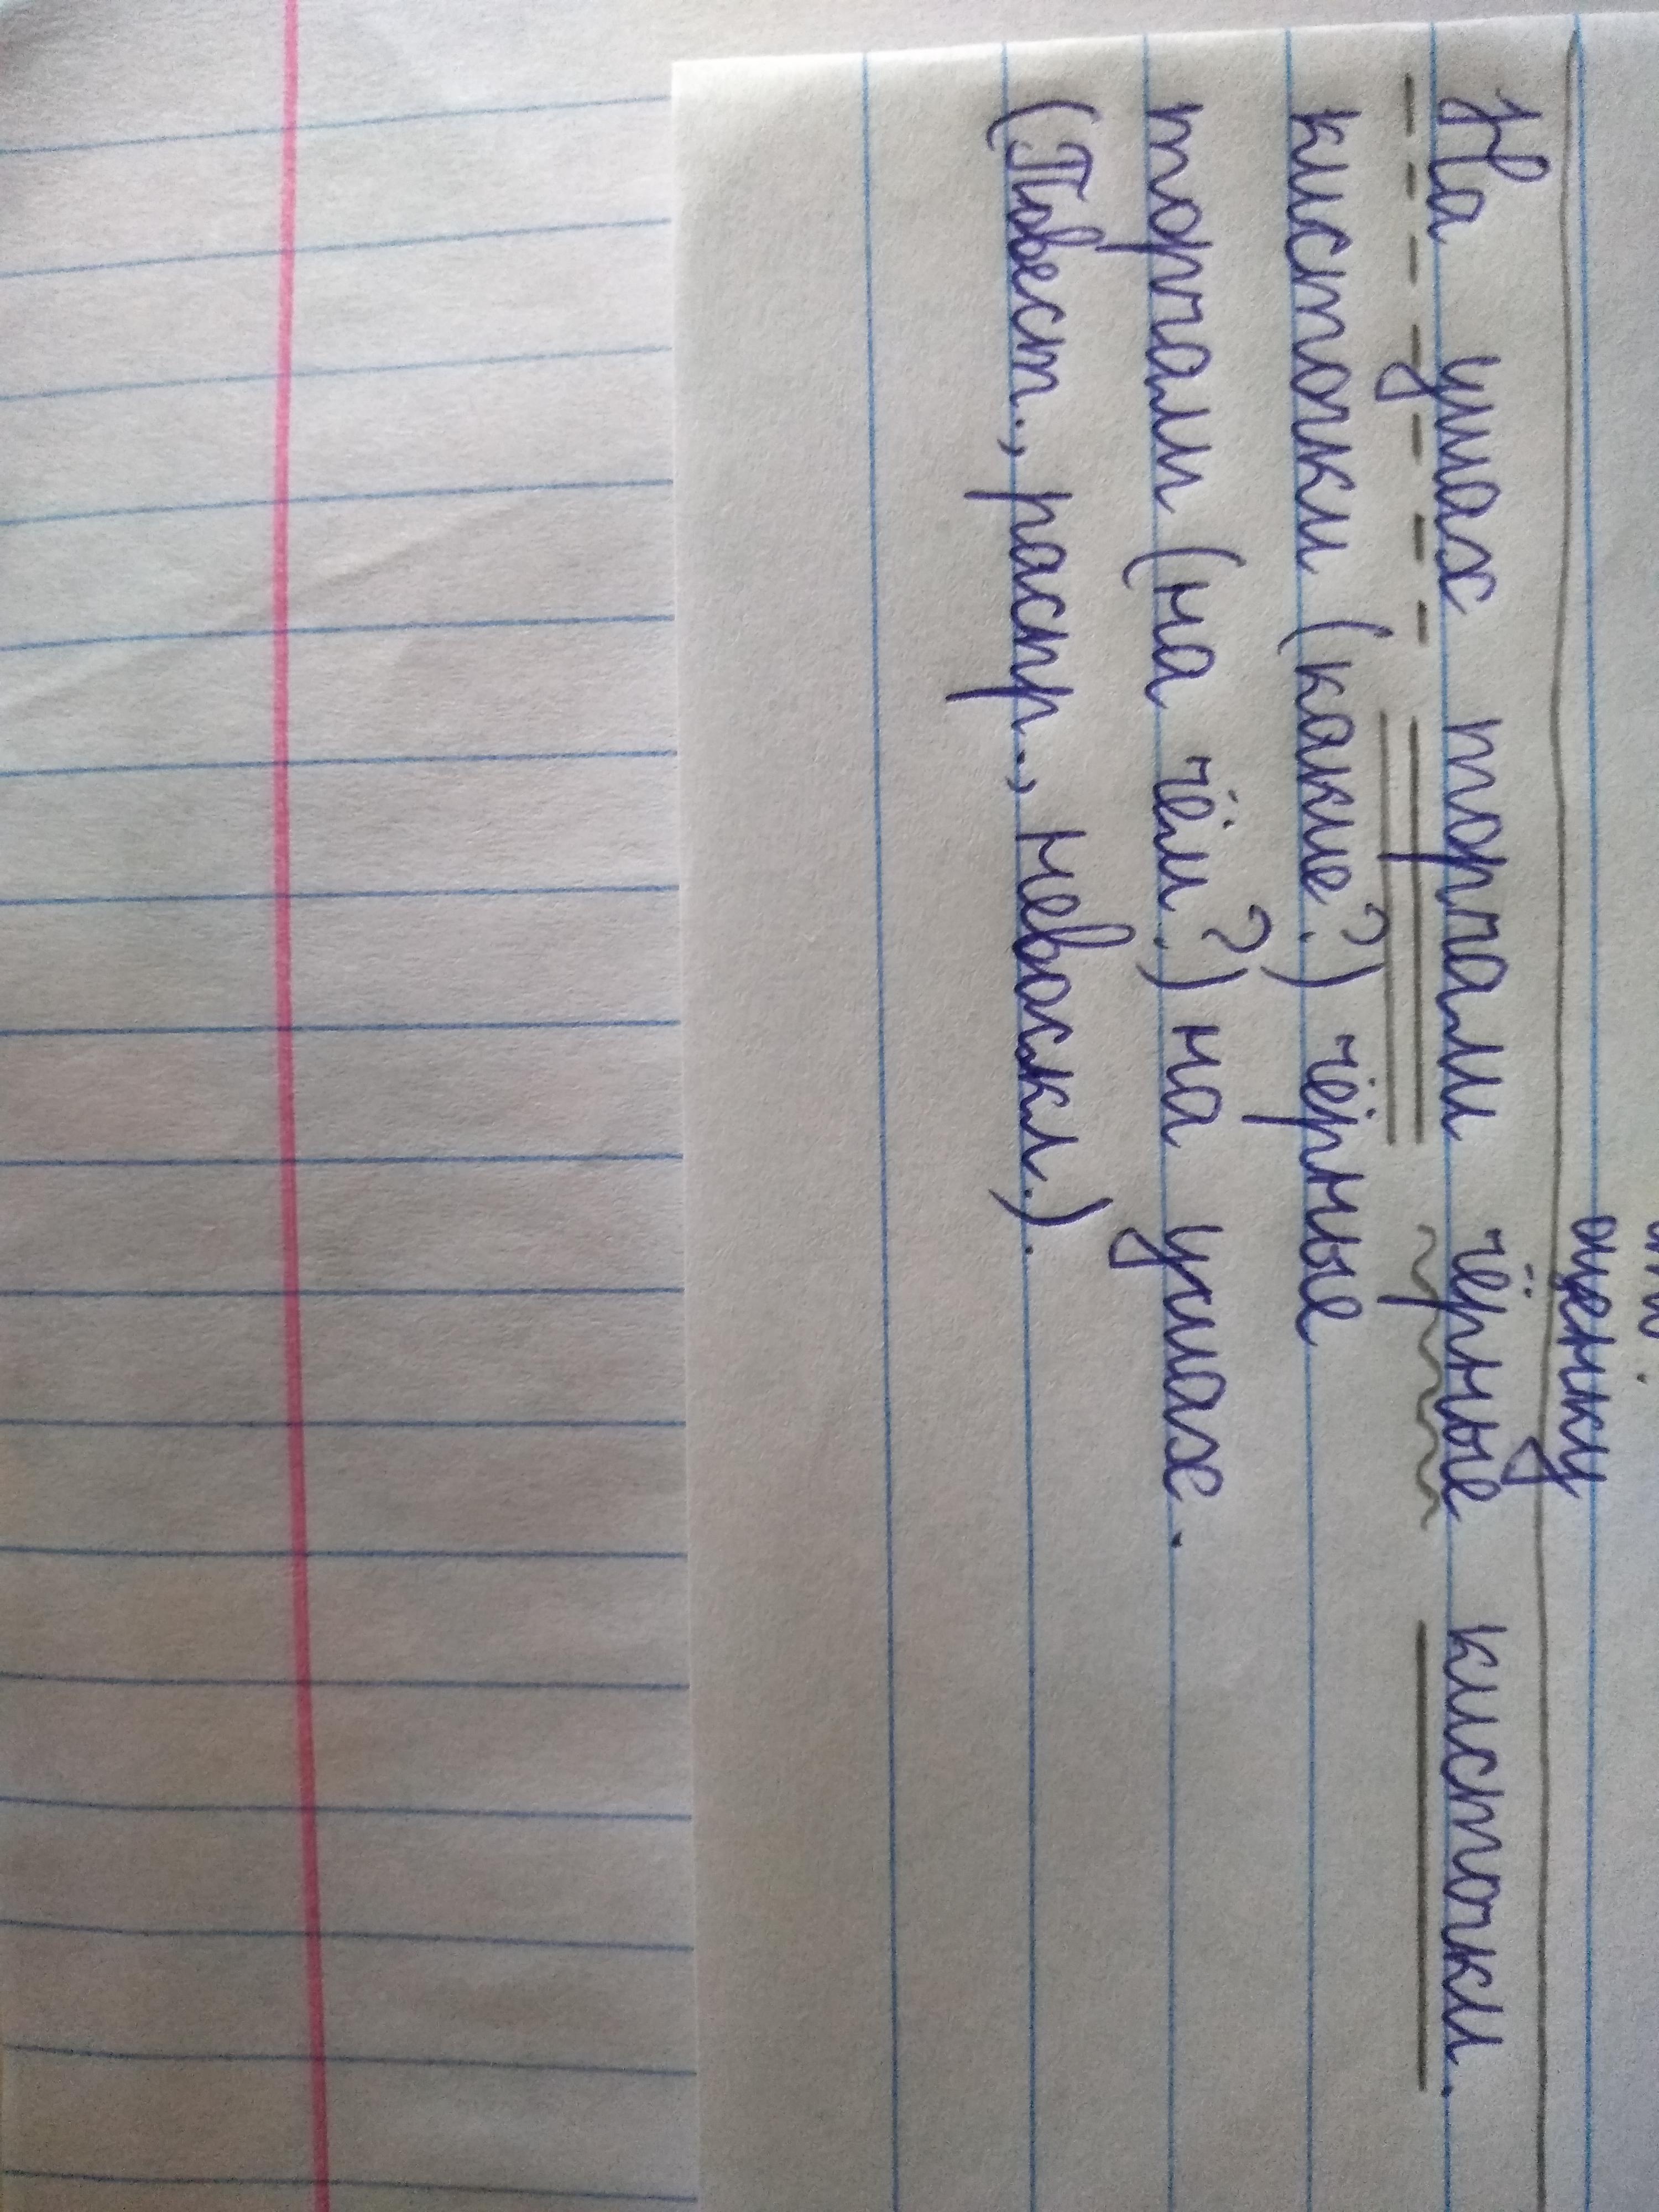 оценку
На ушах торчали чёрные кисточки.
кисточки (какие?) чёрные
торчали (на чём?) на ушах.
(Повест., распр., невоскл.).